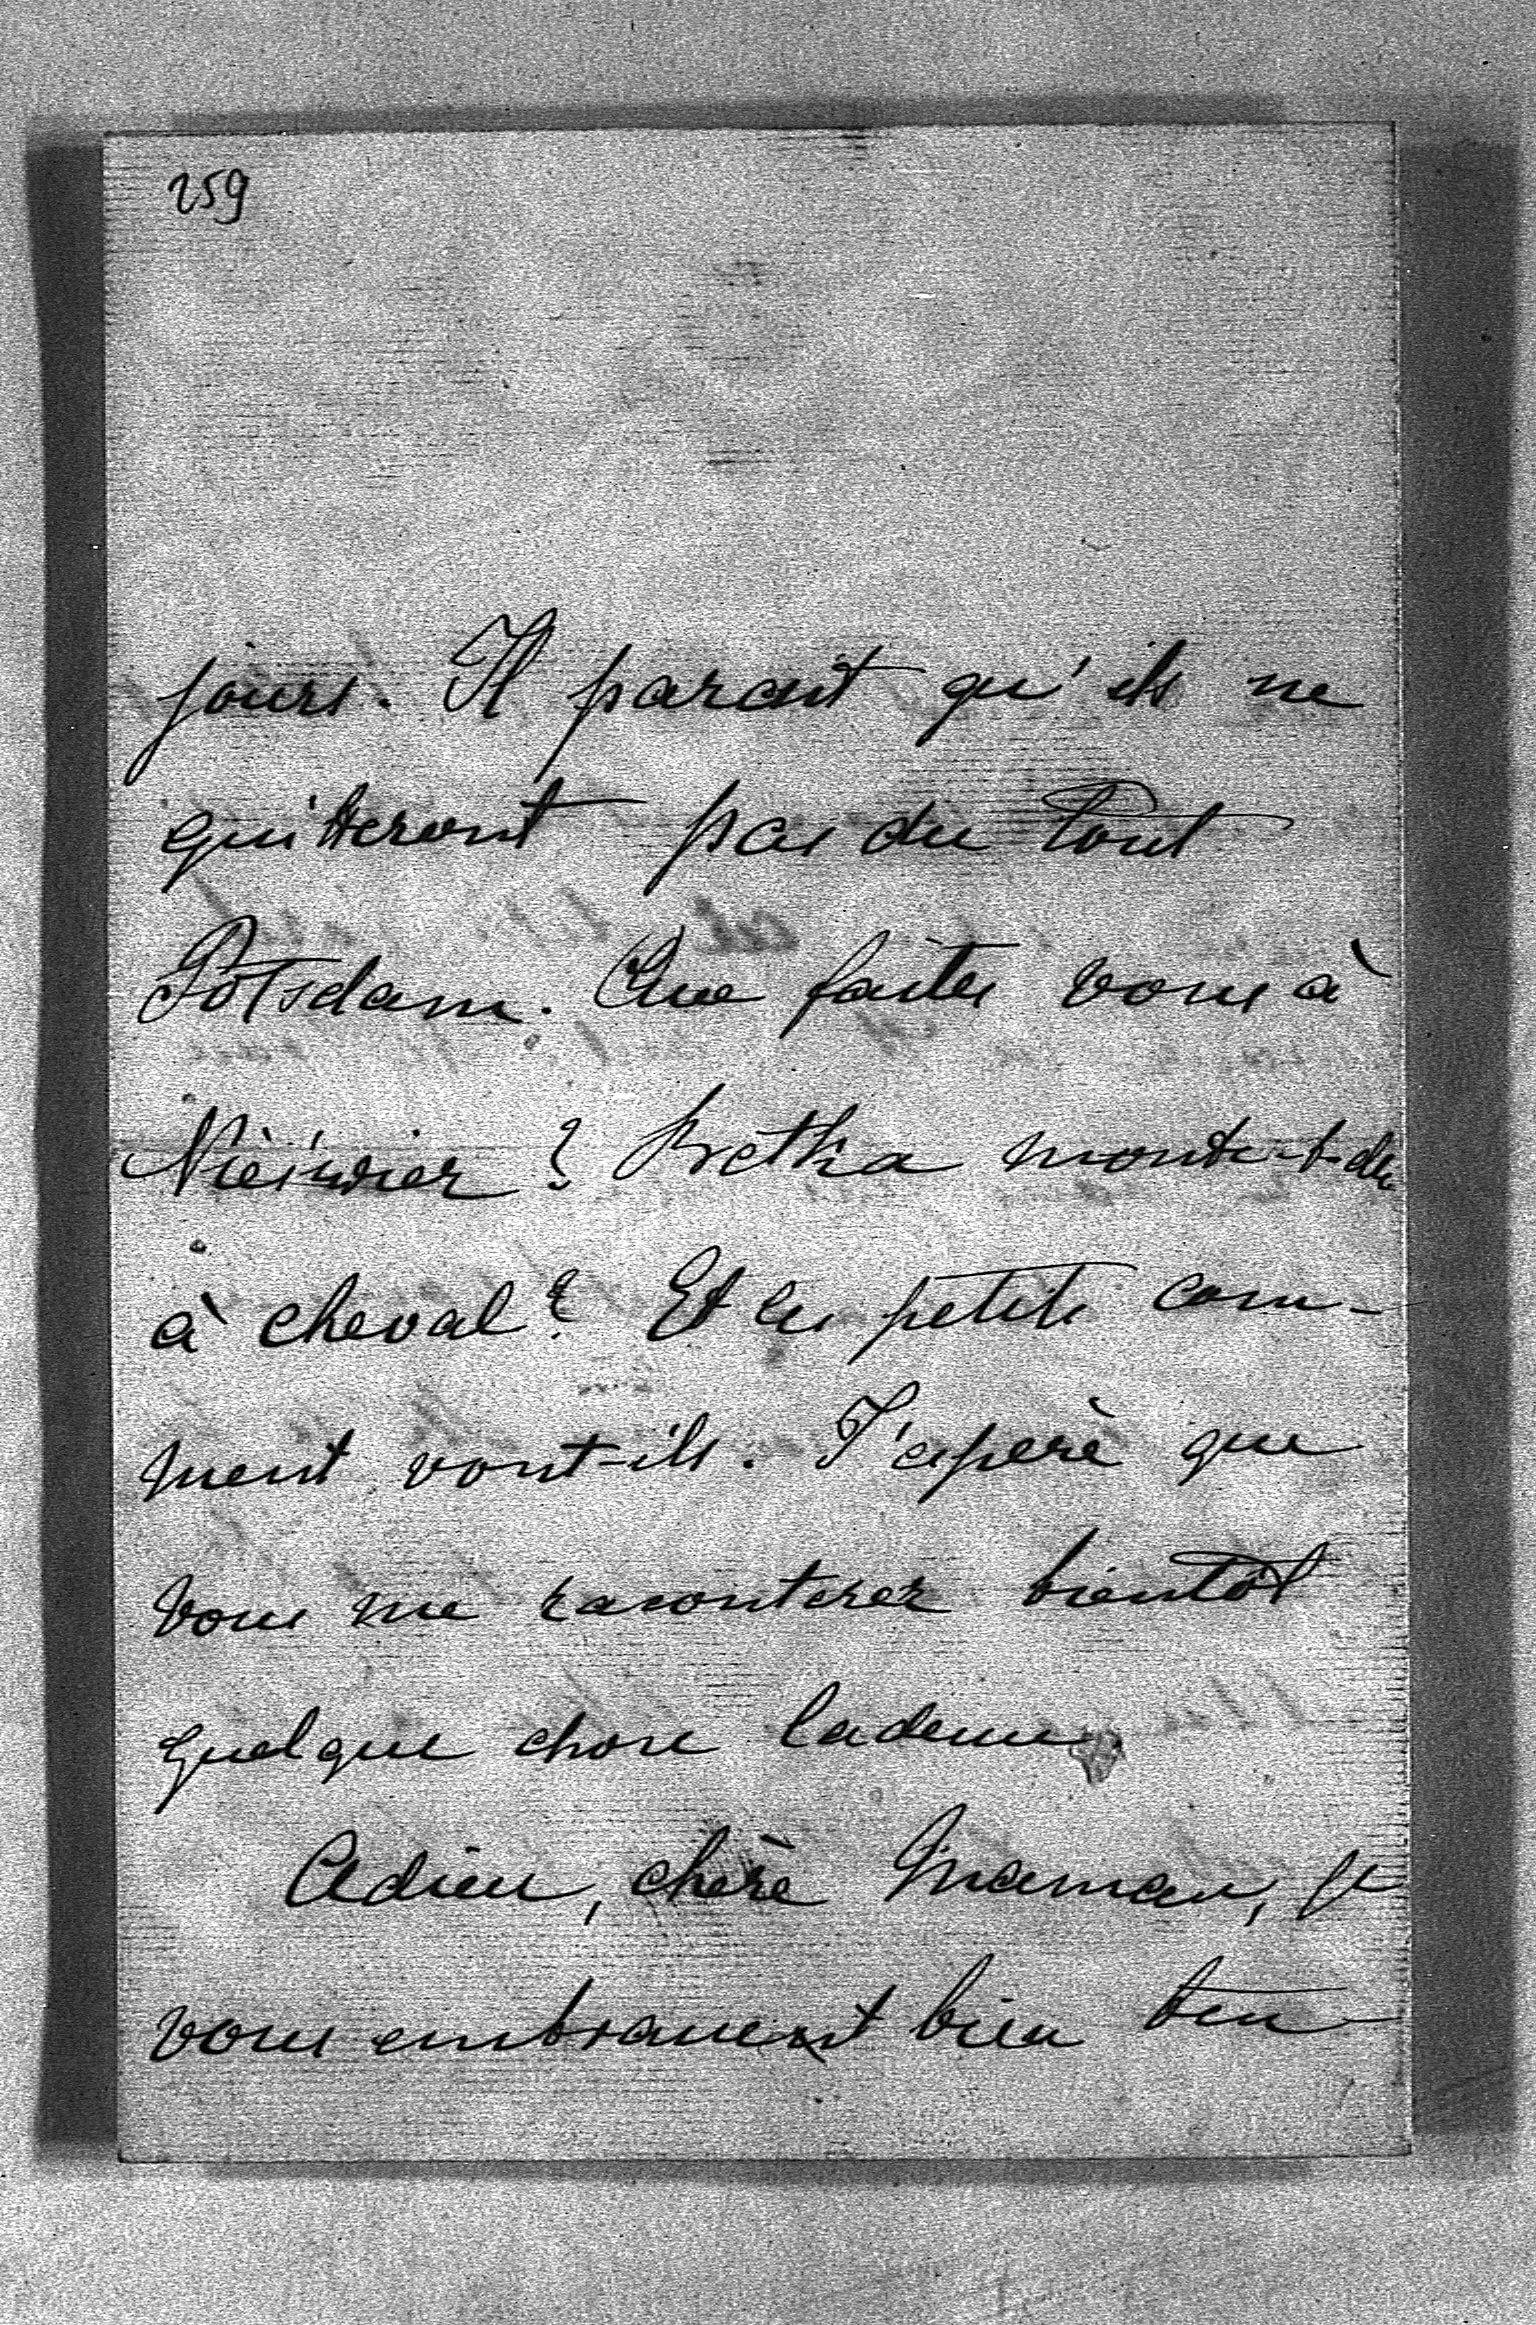 259
jours. Il parait qu'ils ne
quitteront pas du tout
Potsdam. Que faites vous à
Nièswier? Bretka monte-t-de
à cheval? Et les petits com-
ment vont-ils. J'esperè que
vous me raconterez bientôt
quelque chose ladessus.
Adieu, chère Maman, je
vous embrassent bien ten-